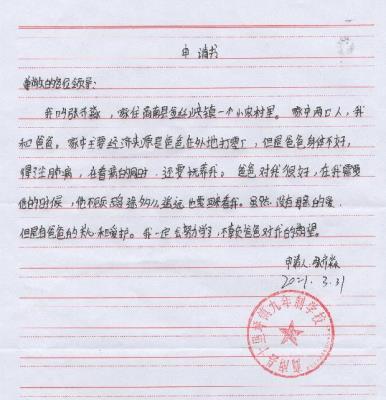 申请书
尊敬的各位领导：
我叫张乔淼，家住商南县金丝峡镇一个小农村里。家中两口人，我
和爸爸。家中主要经济来源是爸爸在外地打零工，但是爸爸身体不好，
得过肺病，在看病的同时，还要抚养我。爸爸对我很好，在我需要
他的时候，他不顾路途多么遥远也要回来看我。虽然没有母的爱，
但是有爸爸的关心和爱护。我一定会努力学习，不辜负爸爸对我的期望。
申请人：张乔淼
2021.3.31
商南县十里坪镇九年制学校